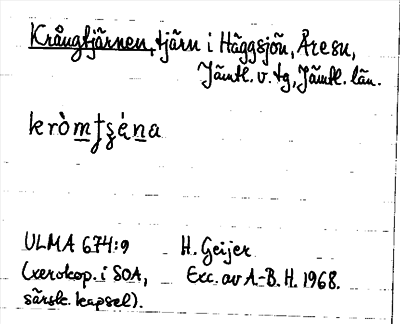 Krångtjärnen, tjärn i Häggsjön, Åre sn,
Jämtl. v. tg, Jämtl. län.
ULMA 674:9 H. Geijer
(xerokop. i SOA, Exc. av A-B. H. 1968.
särsk. kapsel).